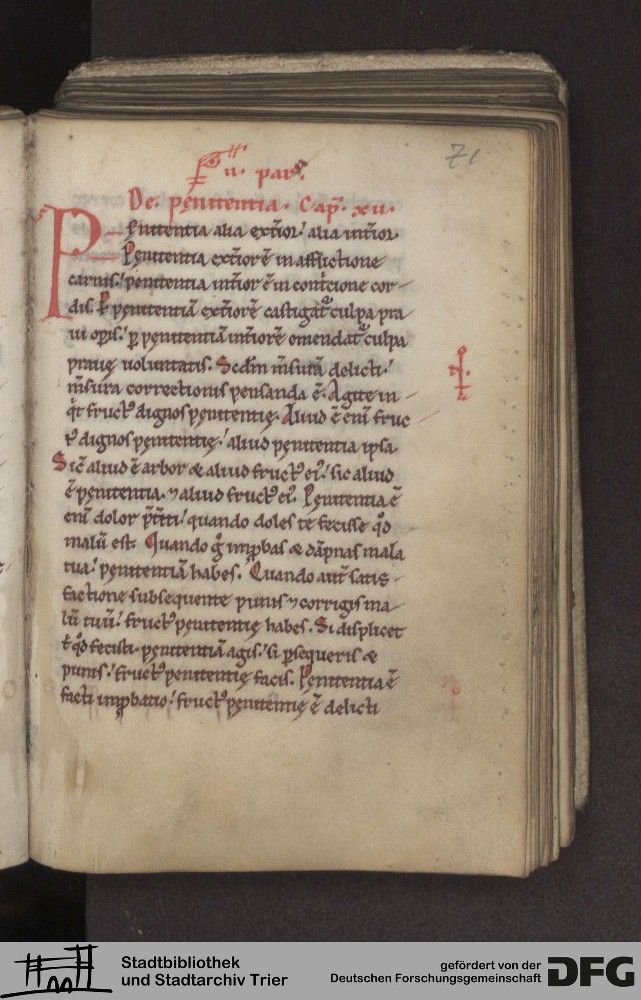 71
ii. pars.
De. pęnitentia. Cap̄. xv.
Pęnitentia alia ext̄ior. alia int̄ior
Pęnitentia ext̄ior ē in afflictione
carnis. penitentia int̄ior ē in cont̄cione cor-
dis. P pęnitentiā ext̄iorē castigat᷑ culpa pra-
ui opis. p pęnitentiā int̄iorē emendat᷑ culpa
prauę uoluntatis. Scdm m̄surā delicti.
m̄sura correctionis pensanda ē. Agite in-
q͛t fruct᷒ dignos pęnitentię. Aliud ē eni᷑ fruc
t᷒ dignos pęnitentię. aliud pęnitentia ipsa.
Sic̄ aliud ē arbor & aliud fruct᷒ ei᷒. sic aliud
ē pęnitentia. ⁊ aliud fruct᷒ ei᷒. Pęnitentia ē
eni᷑ dolor p̄t̄iti. quando doles te fecisse qđ
malū est. Quando g̊ imp̄bas & dāpnas mala
tua. pęnitentiā habes. Quando aut̄ satis-
factione subsequente punis ⁊ corrigis ma-
lū tuū. fruct᷒ pęnitentię habes. Si displicet
t͛ qđ fecisti. pęnitentiā agis. si p̱sequeris &
punis. fruct᷒ pęnitentię facis. Pęnitentia ē
facti imp̄batio. fruct᷒ pęnitentię ē delicti
Stadtbibliothek
und Stadtarchiv Trier
gefördert von der
Deutschen Forschungsgemeinschaft
DFG